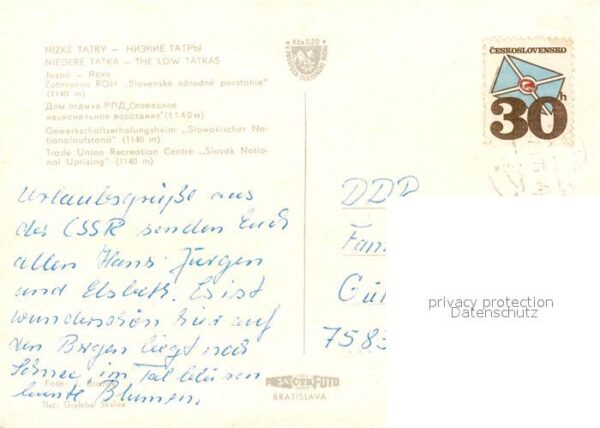 NÍZKE TATRY — НИЗКИЕ ТАТРЫ
NIEDERE TATRA — THE LOW TATRAS
Jasná — Ясна
Zotavovňa ROH „Slovenské národné povstanie"
(1140 m)
Дом отдыха РПД „Словацкое
национальное восстание" (1140 м)
Gewerkschaftserholungsheim „Slowakischer Na-
tionalaufstand" (1140 m)
Trade Union Recreation Centre „Slovak Natio-
nal Uprising" (1140 m)
Kčs 0,20
ČESKOSLOVENSKO
30h
Urlaubsgrüße aus
der CSSR senden Euch
allen Hans-Jürgen
und Elsbeth. Es ist
wunderschön hier auf
den Bergen liegt noch
Schnee, im Tal blühen
bunte Blumen.
DDR
Fam
Gü
7583
privacy protection
Datenschutz
Foto:
Tlač: Grafobal Skalica
PRESSFOTO
BRATISLAVA